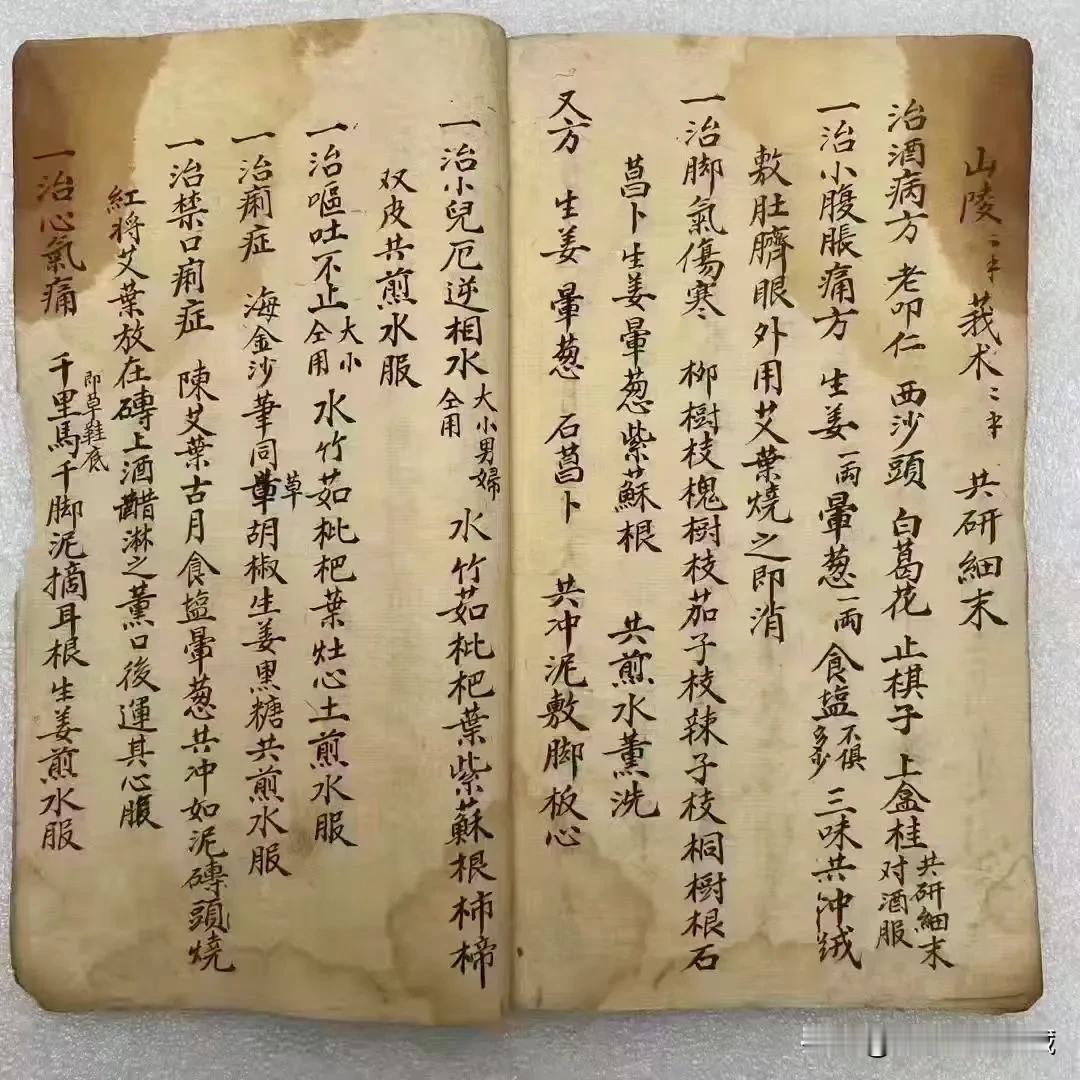 山陵二半 莪术二半 共研細末
治酒病方 老叩仁 西沙頭 白葛花 止棋子 上盒桂 共研細末 对酒服
一治小腹脹痛方 生姜一両 暈葱一両 食塩不俱多少 三味共冲绒
敷肚臍眼外用艾葉燒之即消
一治脚氣傷寒 柳樹枝槐樹枝茄子枝辣子枝桐樹根石
菖卜生姜暈葱紫蘇根 共煎水薰洗
又方 生姜 暈葱 石菖卜 共冲泥敷脚板心
一治小兒厄逆相水 大小男婦仝用 水竹茹枇杷葉紫蘇根柿楴
双皮共煎水服
一治嘔吐不止 大小仝用 水竹茹枇杷葉灶心土煎水服
一治痢症 海金沙筆同草胡椒生姜黒糖共煎水服
一治禁口痢症 陳艾葉古月食塩暈葱共冲如泥磚頭燒
紅将艾葉放在磚上酒醋淋之薰口後運其心服
一治心氣痛 千里馬即草鞋底千脚泥摘耳根生姜煎水服